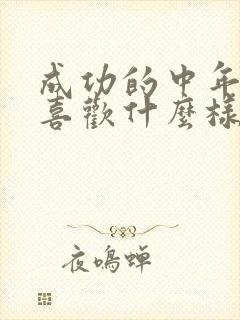 成功的中年
喜歡什麼樣
夜鳴蟬